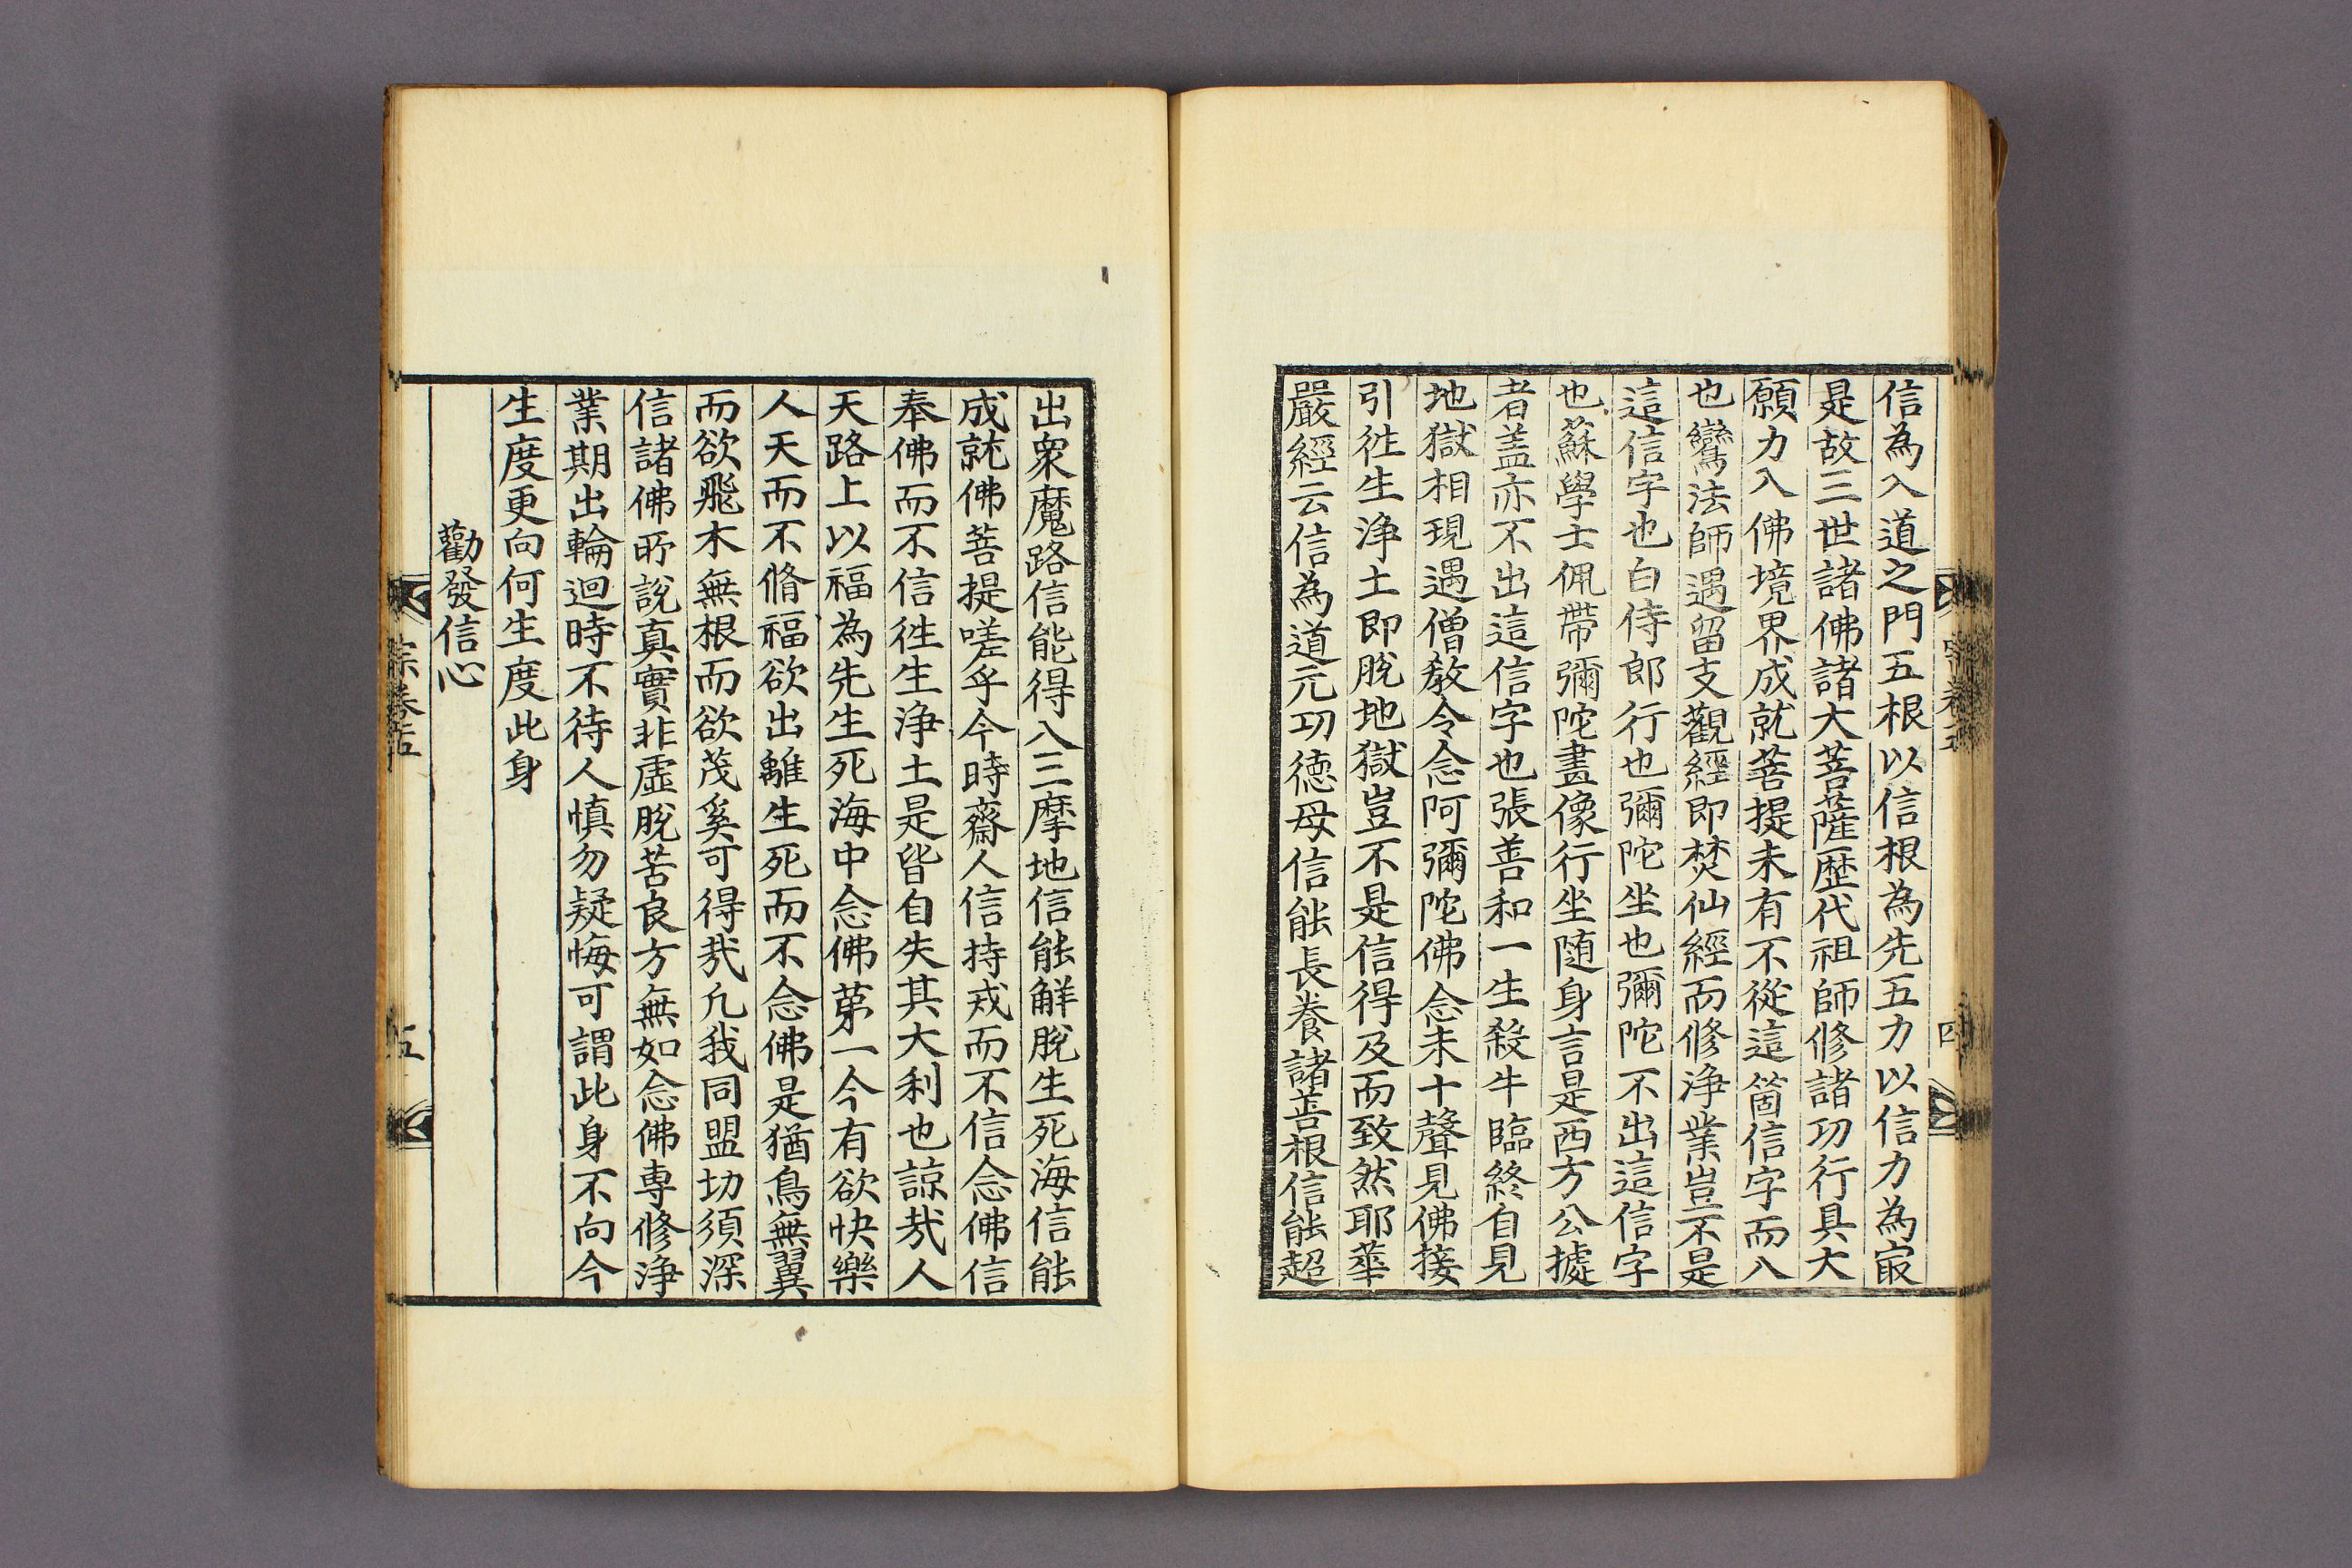 信為入道之門五根以信根為先五力以信力為㝡
是故三世諸佛諸大菩薩歷代祖師修諸功行具大
願力入佛境界成就菩提未有不從這箇信字而入
也鸞法師遇留支觀經即焚仙經而修淨業豈不是
這信字也白侍郎行也彌陀坐也彌陀不出這信字
也蘇學士佩帶彌陀畫像行坐隨身言是西方公據
者盖亦不出這信字也張善和一生殺牛臨終自見
地獄相現遇僧教令念阿彌陀佛念未十聲見佛接
引徃生淨土即脫地獄豈不是信得及而致然耶華
嚴經云信為道元功德母信能長養諸善根信能超
出衆魔路信能得入三摩地信能觧脫生死海信能
成就佛菩提嗟乎今時齋人信持戒而不信念佛信
奉佛而不信徃生淨土是皆自失其大利也諒㢤人
天路上以福為先生死海中念佛苐一今有欲快樂
人天而不脩福欲出離生死而不念佛是猶鳥無翼
而欲飛木無根而欲茂奚可得㢤凡我同盟切須深
信諸佛所說真實非虛脫苦良方無如念佛專修淨
業期出輪迴時不待人慎勿疑悔可謂此身不向今
生度更向何生度此身
勸發信心
宗卷五
五